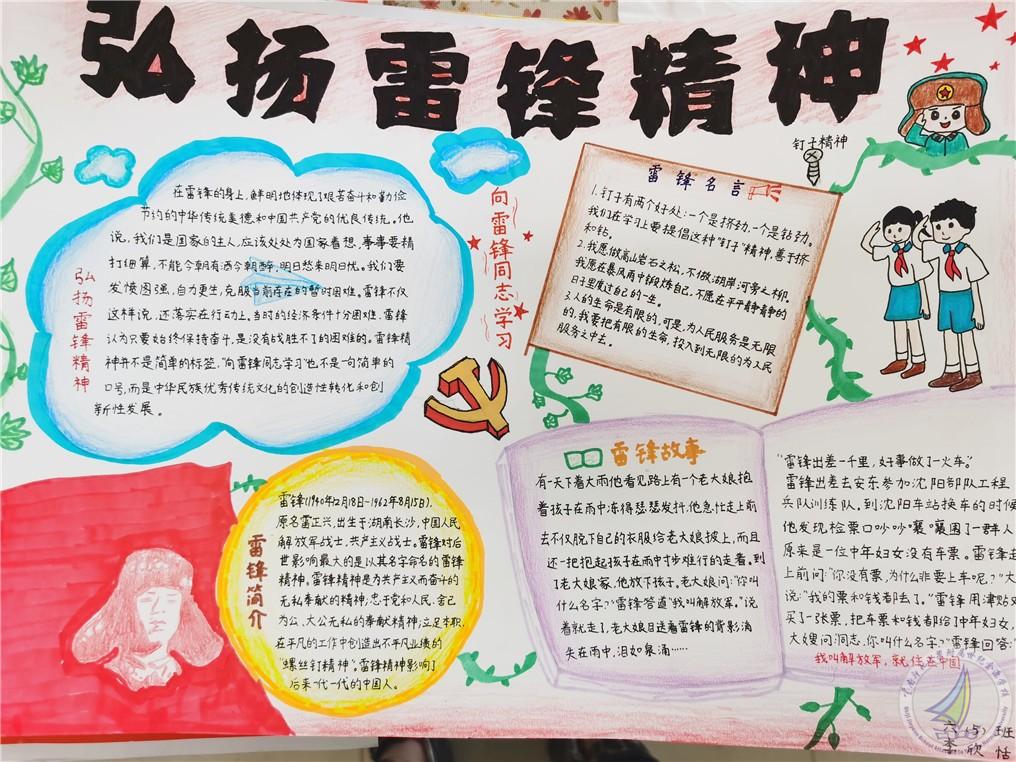 弘扬雷锋精神
弘扬雷锋精神
在雷锋的身上,鲜明地体现了艰苦奋斗和勤俭
节约的中华传统美德和中国共产党的优良传统。他
说,我们是国家的主人,应该处处为国家着想,事事要精
打细算,不能今朝有酒今朝醉,明日愁来明日忧。我们要
发愤图强,自力更生,克服当前存在的暂时困难。雷锋不仅
这样说,还落实在行动上。当时的经济条件十分困难,雷锋
认为只要始终保持奋斗,是没有战胜不了的困难的。雷锋精
神并不是简单的标签,"向雷锋同志学习"也不是一句简单的
口号,而是中华民族优秀传统文化的创造性转化和创
新性发展。
向雷锋同志学习
钉子精神
雷锋名言
1.钉子有两个好处:一个是挤劲,一个是钻劲。
我们在学习上要提倡这种"钉子"精神,善于挤
和钻。
2.我愿做高山岩石之松,不做湖岸河旁之柳。
我愿在暴风雨中锻炼自己,不愿在平平静静的
日子里度过自己的一生。
3.人的生命是有限的,可是,为人民服务是无限
的,我要把有限的生命,投入到无限的为人民
服务之中去。
雷锋简介
雷锋(1940年12月18日~1962年8月15日),
原名雷正兴,出生于湖南长沙,中国人民
解放军战士,共产主义战士。雷锋对后
世影响最大的是以其名字命名的雷锋
精神。雷锋精神是为共产主义而奋斗的
无私奉献的精神;忠于党和人民、舍己
为公、大公无私的奉献精神;立足本职、
在平凡的工作中创造出不平凡业绩的
"螺丝钉精神"。雷锋精神影响了
后来一代一代的中国人。
雷锋故事
有一天下着大雨他看见路上有一个老大娘抱
着孩子在雨中冻得瑟瑟发抖,他急忙走上前
去不仅脱下自己的衣服给老大娘披上,而且
还一把抱起孩子在雨中寸步难行的走着。到
了老大娘家,他放下孩子。老大娘问:"你叫
什么名字?"雷锋答道"我叫解放军。"说
着就走了,老大娘目送着雷锋的背影消
失在雨中,泪如泉涌……
"雷锋出差一千里,好事做了一火车。"
雷锋出差去安东参加沈阳部队工程
兵队训练队。到沈阳车站换车的时候
他发现检票口吵吵嚷嚷围了一群人
原来是一位中年妇女没有车票。雷锋走
上前问:"你没有票,为什么非要上车呢?"大
说:"我的票和钱都丢了。"雷锋用津贴又
买了一张票,把车票和钱都给了中年妇女,
大嫂问:同志,你叫什么名字?"雷锋回答:"
我叫解放军,就住在中国
六(5)班
李欣恬